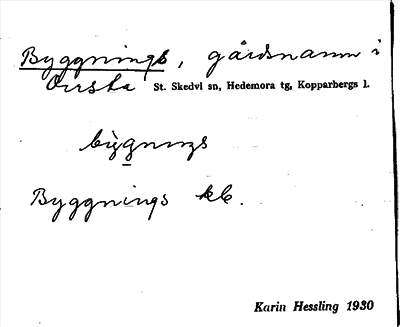 Byggnings, gårdsnamn i
Orrsta St. Skedvi sn, Hedemora tg, Kopparbergs l.
bygnings
Byggnings kb.
Karin Hessling 1930